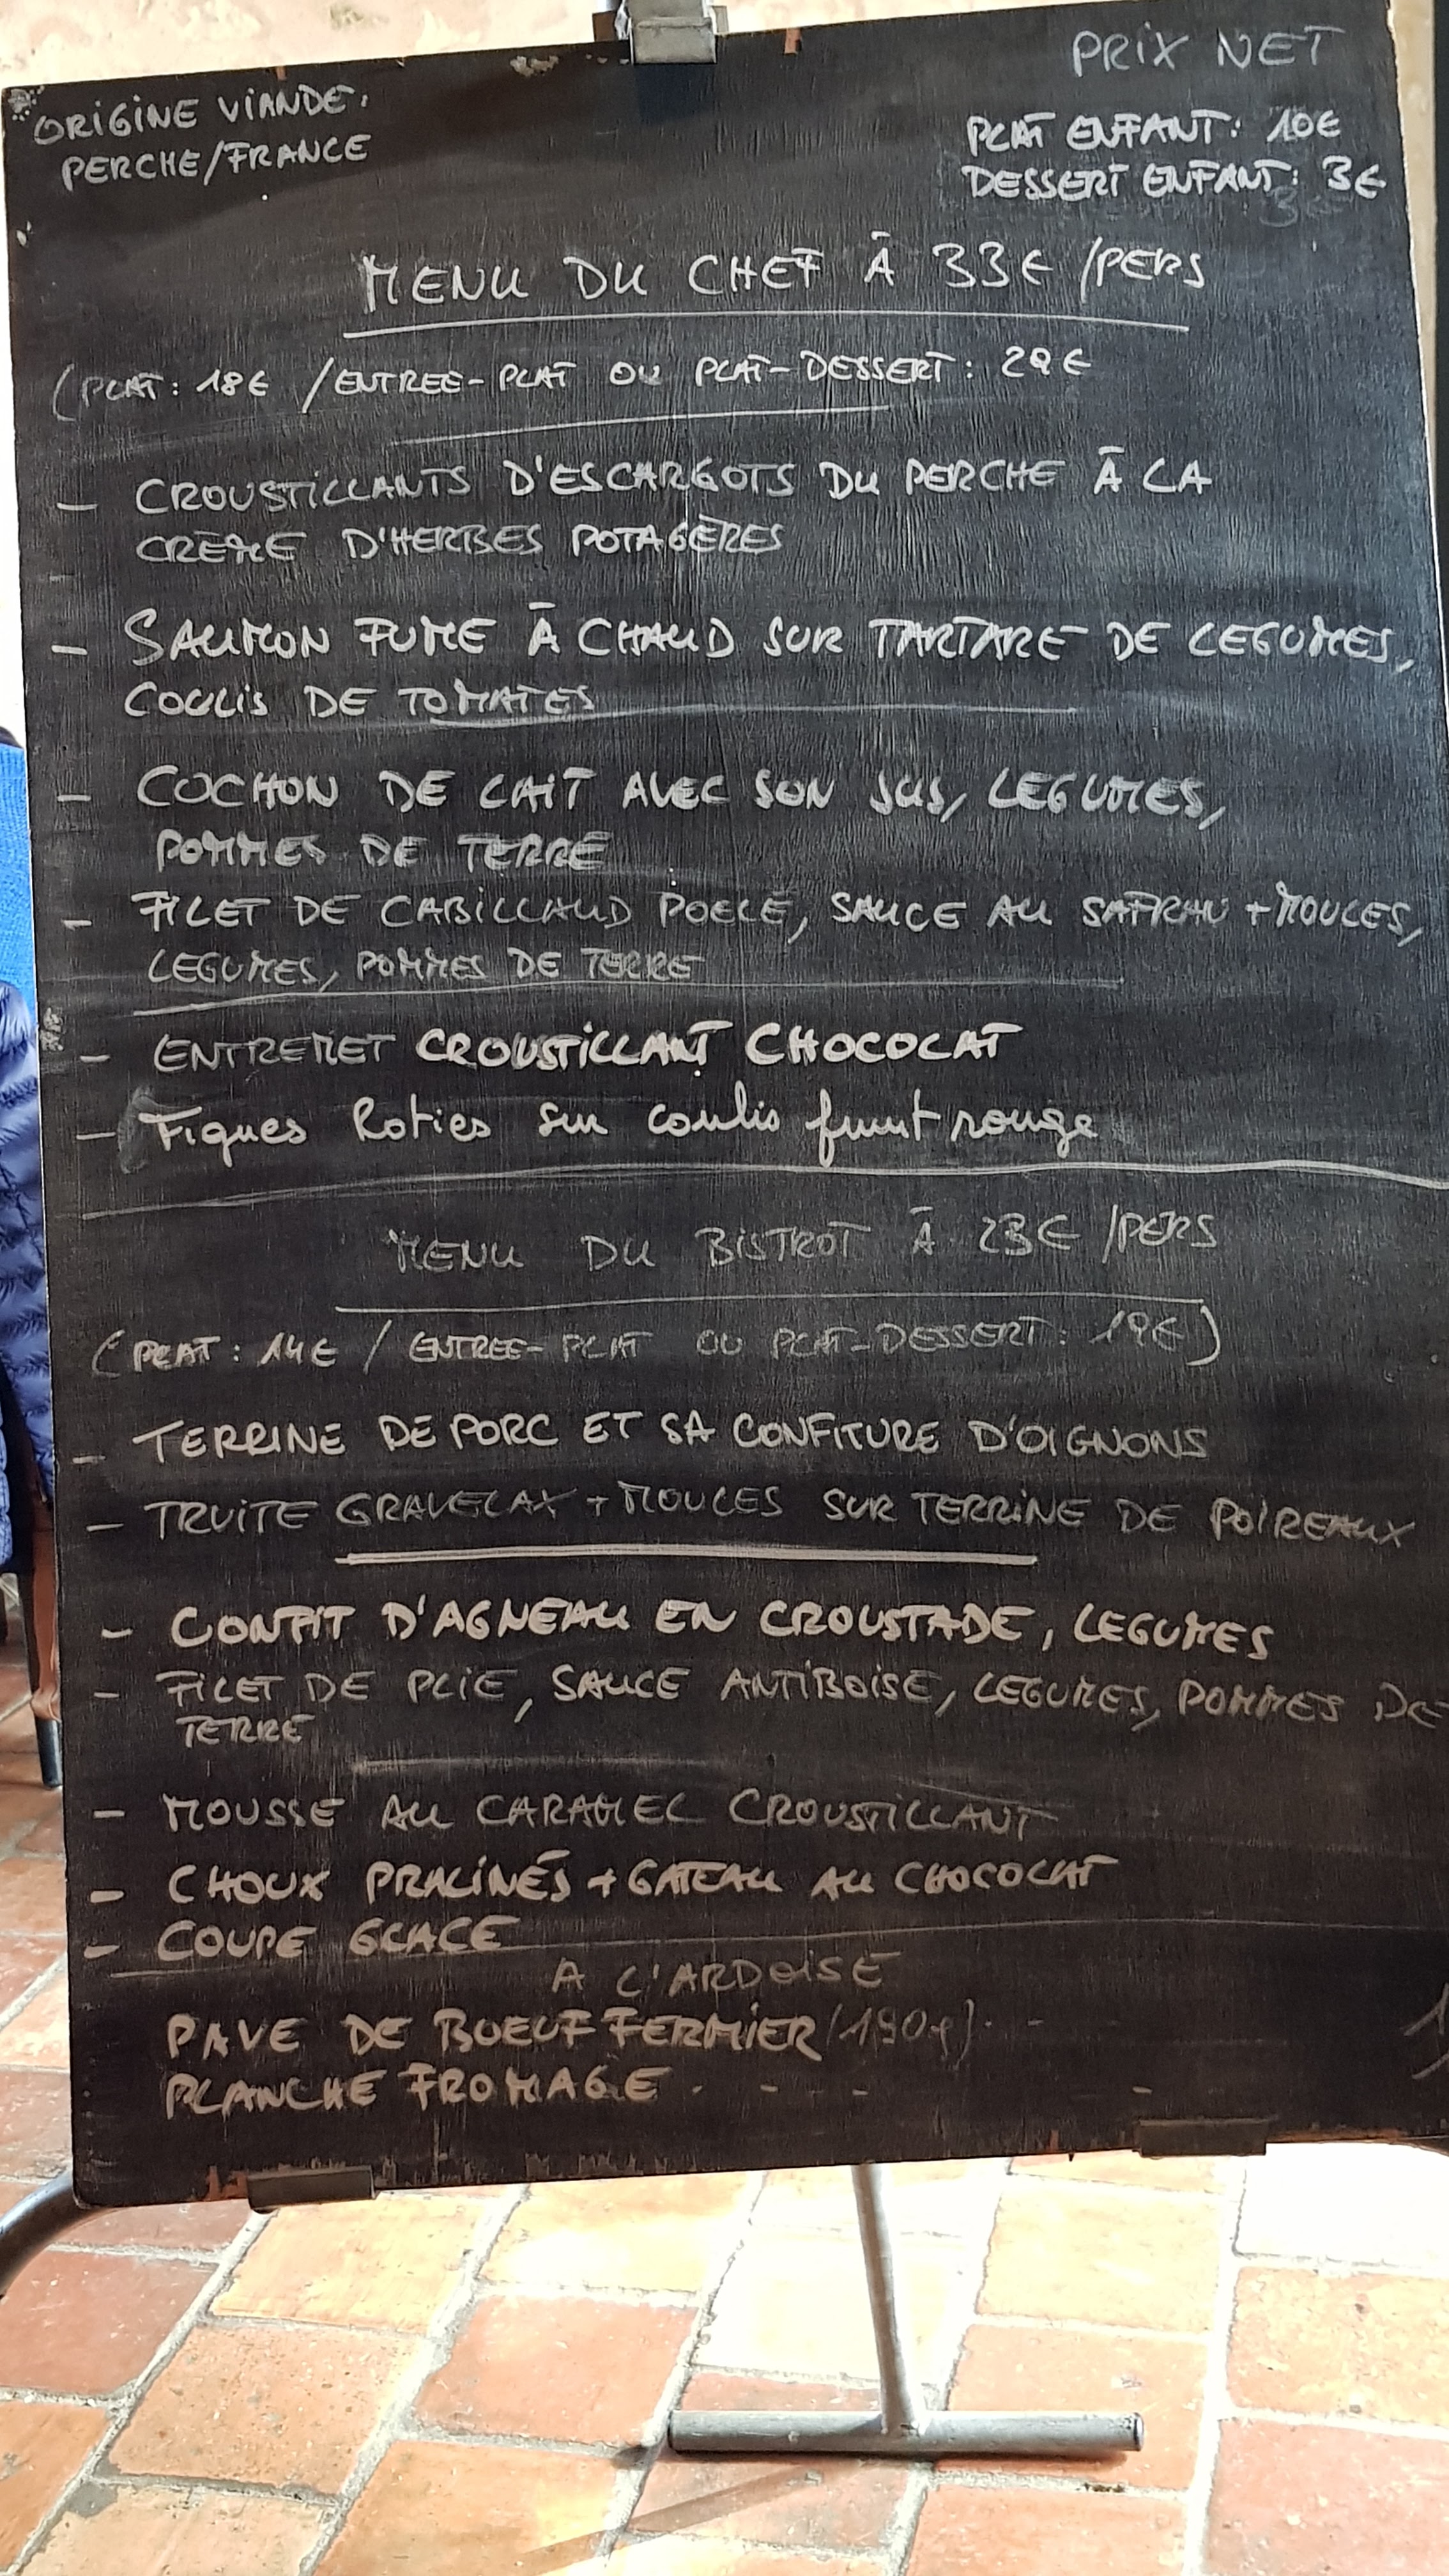 PRIX NET
ORIGINE VIANDE:
PERCHE/FRANCE
PLAT ENFANT: 10€
DESSERT ENFANT: 3€
MENU DU CHEF À 33€ /PERS
(PLAT: 18€ /ENTREE-PLAT OU PLAT-DESSERT: 29€
- CROUSTILLANTS D'ESCARGOTS DU PERCHE À LA
CRÈME D'HERBES POTAGÈRES
- SAUMON FUME À CHAUD SUR TARTARE DE LEGUMES,
COULIS DE TOMATES
- COCHON DE LAIT AVEC SON JUS, LEGUMES,
POMMES DE TERRE
- FILET DE CABILLAUD POELÉ, SAUCE AU SAFRAN + MOULES,
LEGUMES, POMMES DE TERRE
- ENTREMET CROUSTILLANT CHOCOLAT
- Figues Roties sur coulis fruit rouge
MENU DU BISTROT À 23€ /PERS
(PLAT: 14€ / ENTREE-PLAT OU PLAT-DESSERT: 19€)
- TERRINE DE PORC ET SA CONFITURE D'OIGNONS
- TRUITE GRAVELAX + MOULES SUR TERRINE DE POIREAUX
- CONFIT D'AGNEAU EN CROUSTADE, LEGUMES
- FILET DE PLIE, SAUCE ANTIBOISE, LEGUMES, POMMES DE
TERRE
- MOUSSE AU CARAMEL CROUSTILLANT
- CHOUX PRALINÉS + GATEAU AU CHOCOLAT
- COUPE GLACE
A L'ARDOISE
PAVE DE BOEUF FERMIER
PLANCHE FROMAGE